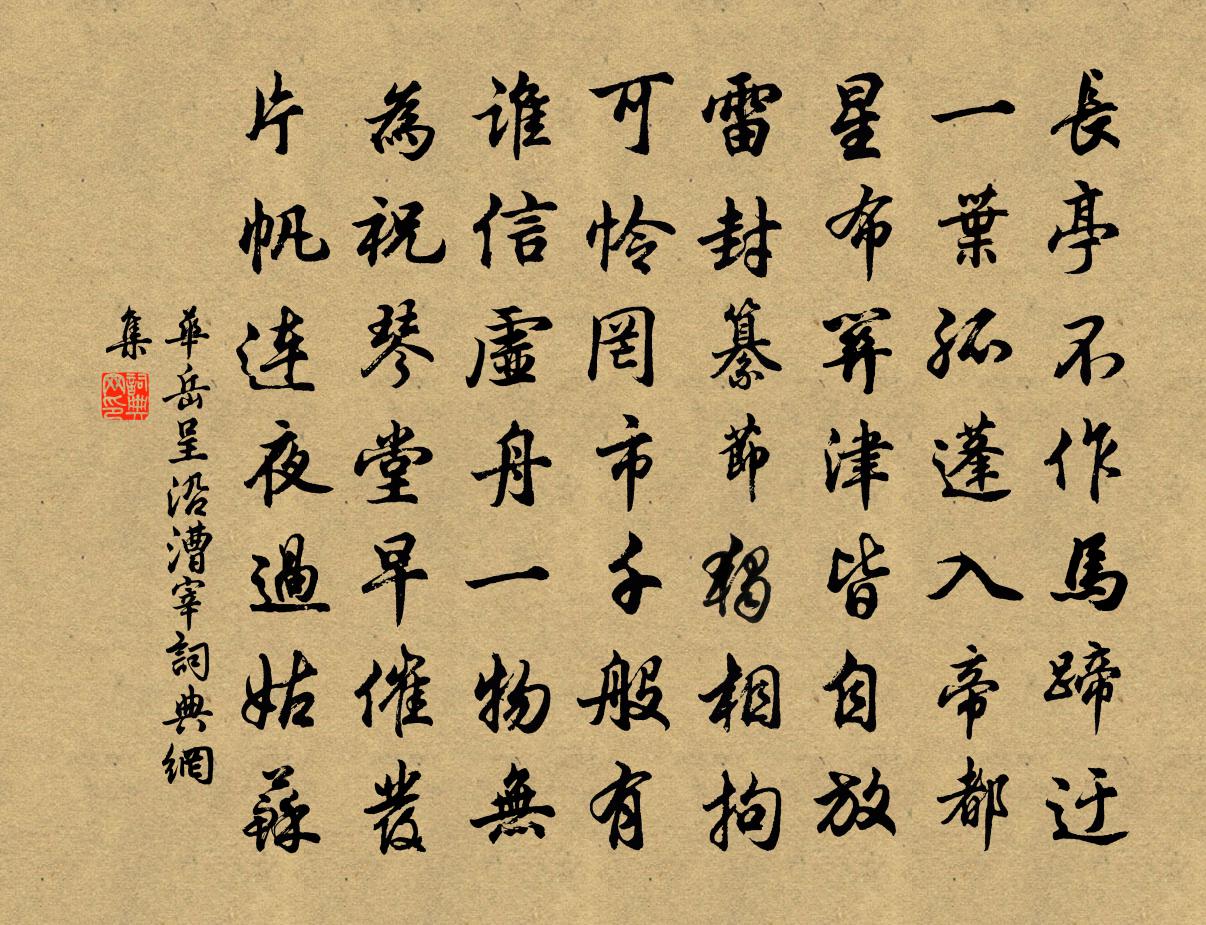 長亭不作馬蹄迂
一葉孤蓬入帝都
星布筭津皆自放
雷封纂節獨相拘
可憐罔市千般有
誰信虛舟一物無
為祝琴堂早催發
片帆連夜過姑蘇
華岳呈沿漕宰詞典網
集
詞典